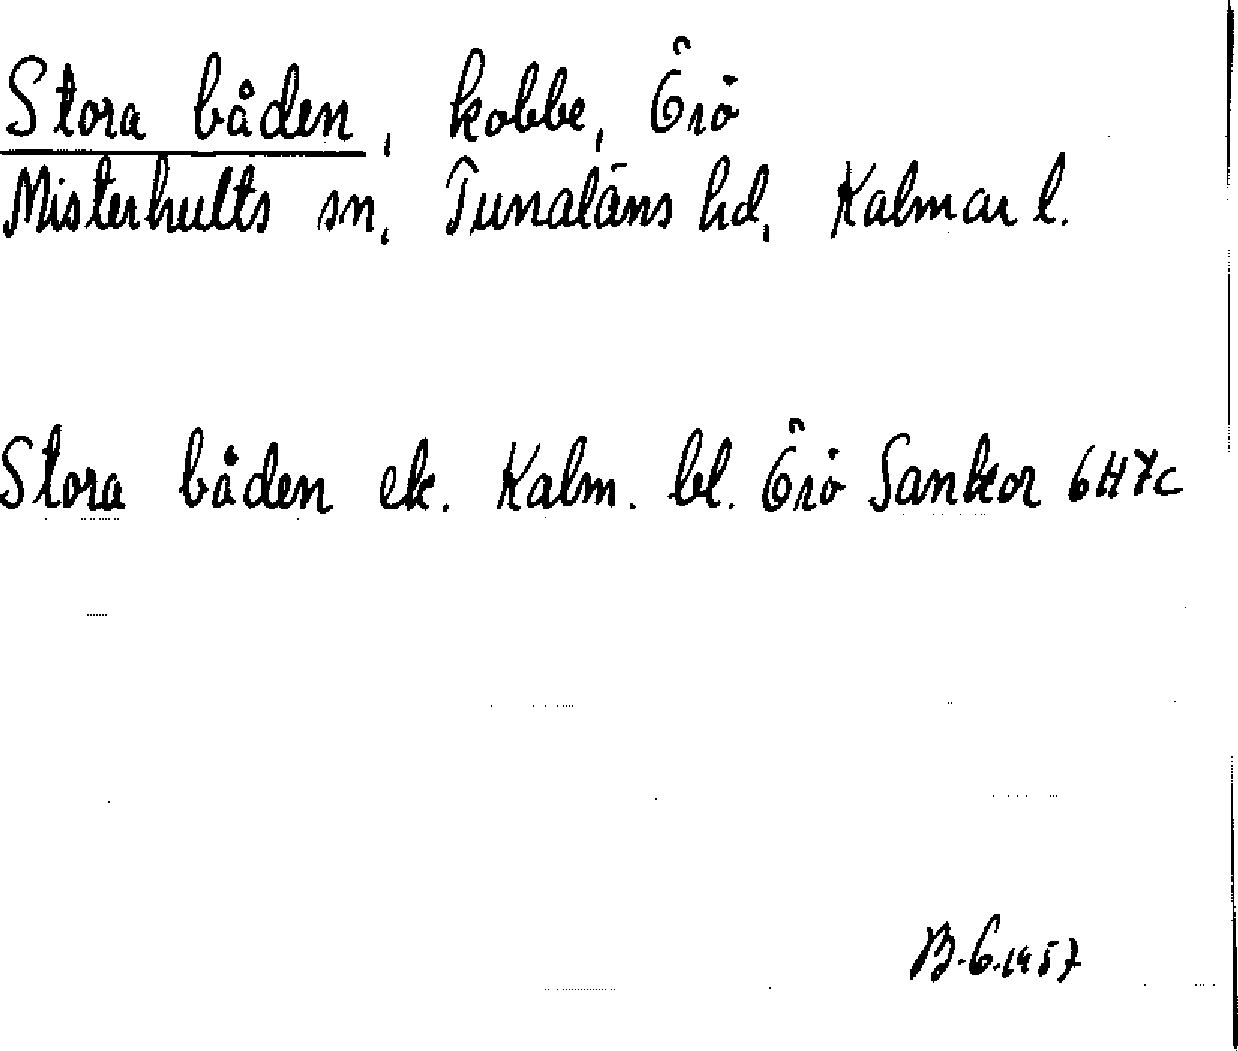 Stora båden, kobbe, Örö
Misterhults sn, Tunaläns hd, Kalmar l.
Stora båden ek. Kalm. bl. Örö Sankor 6H7c
B.G.1957